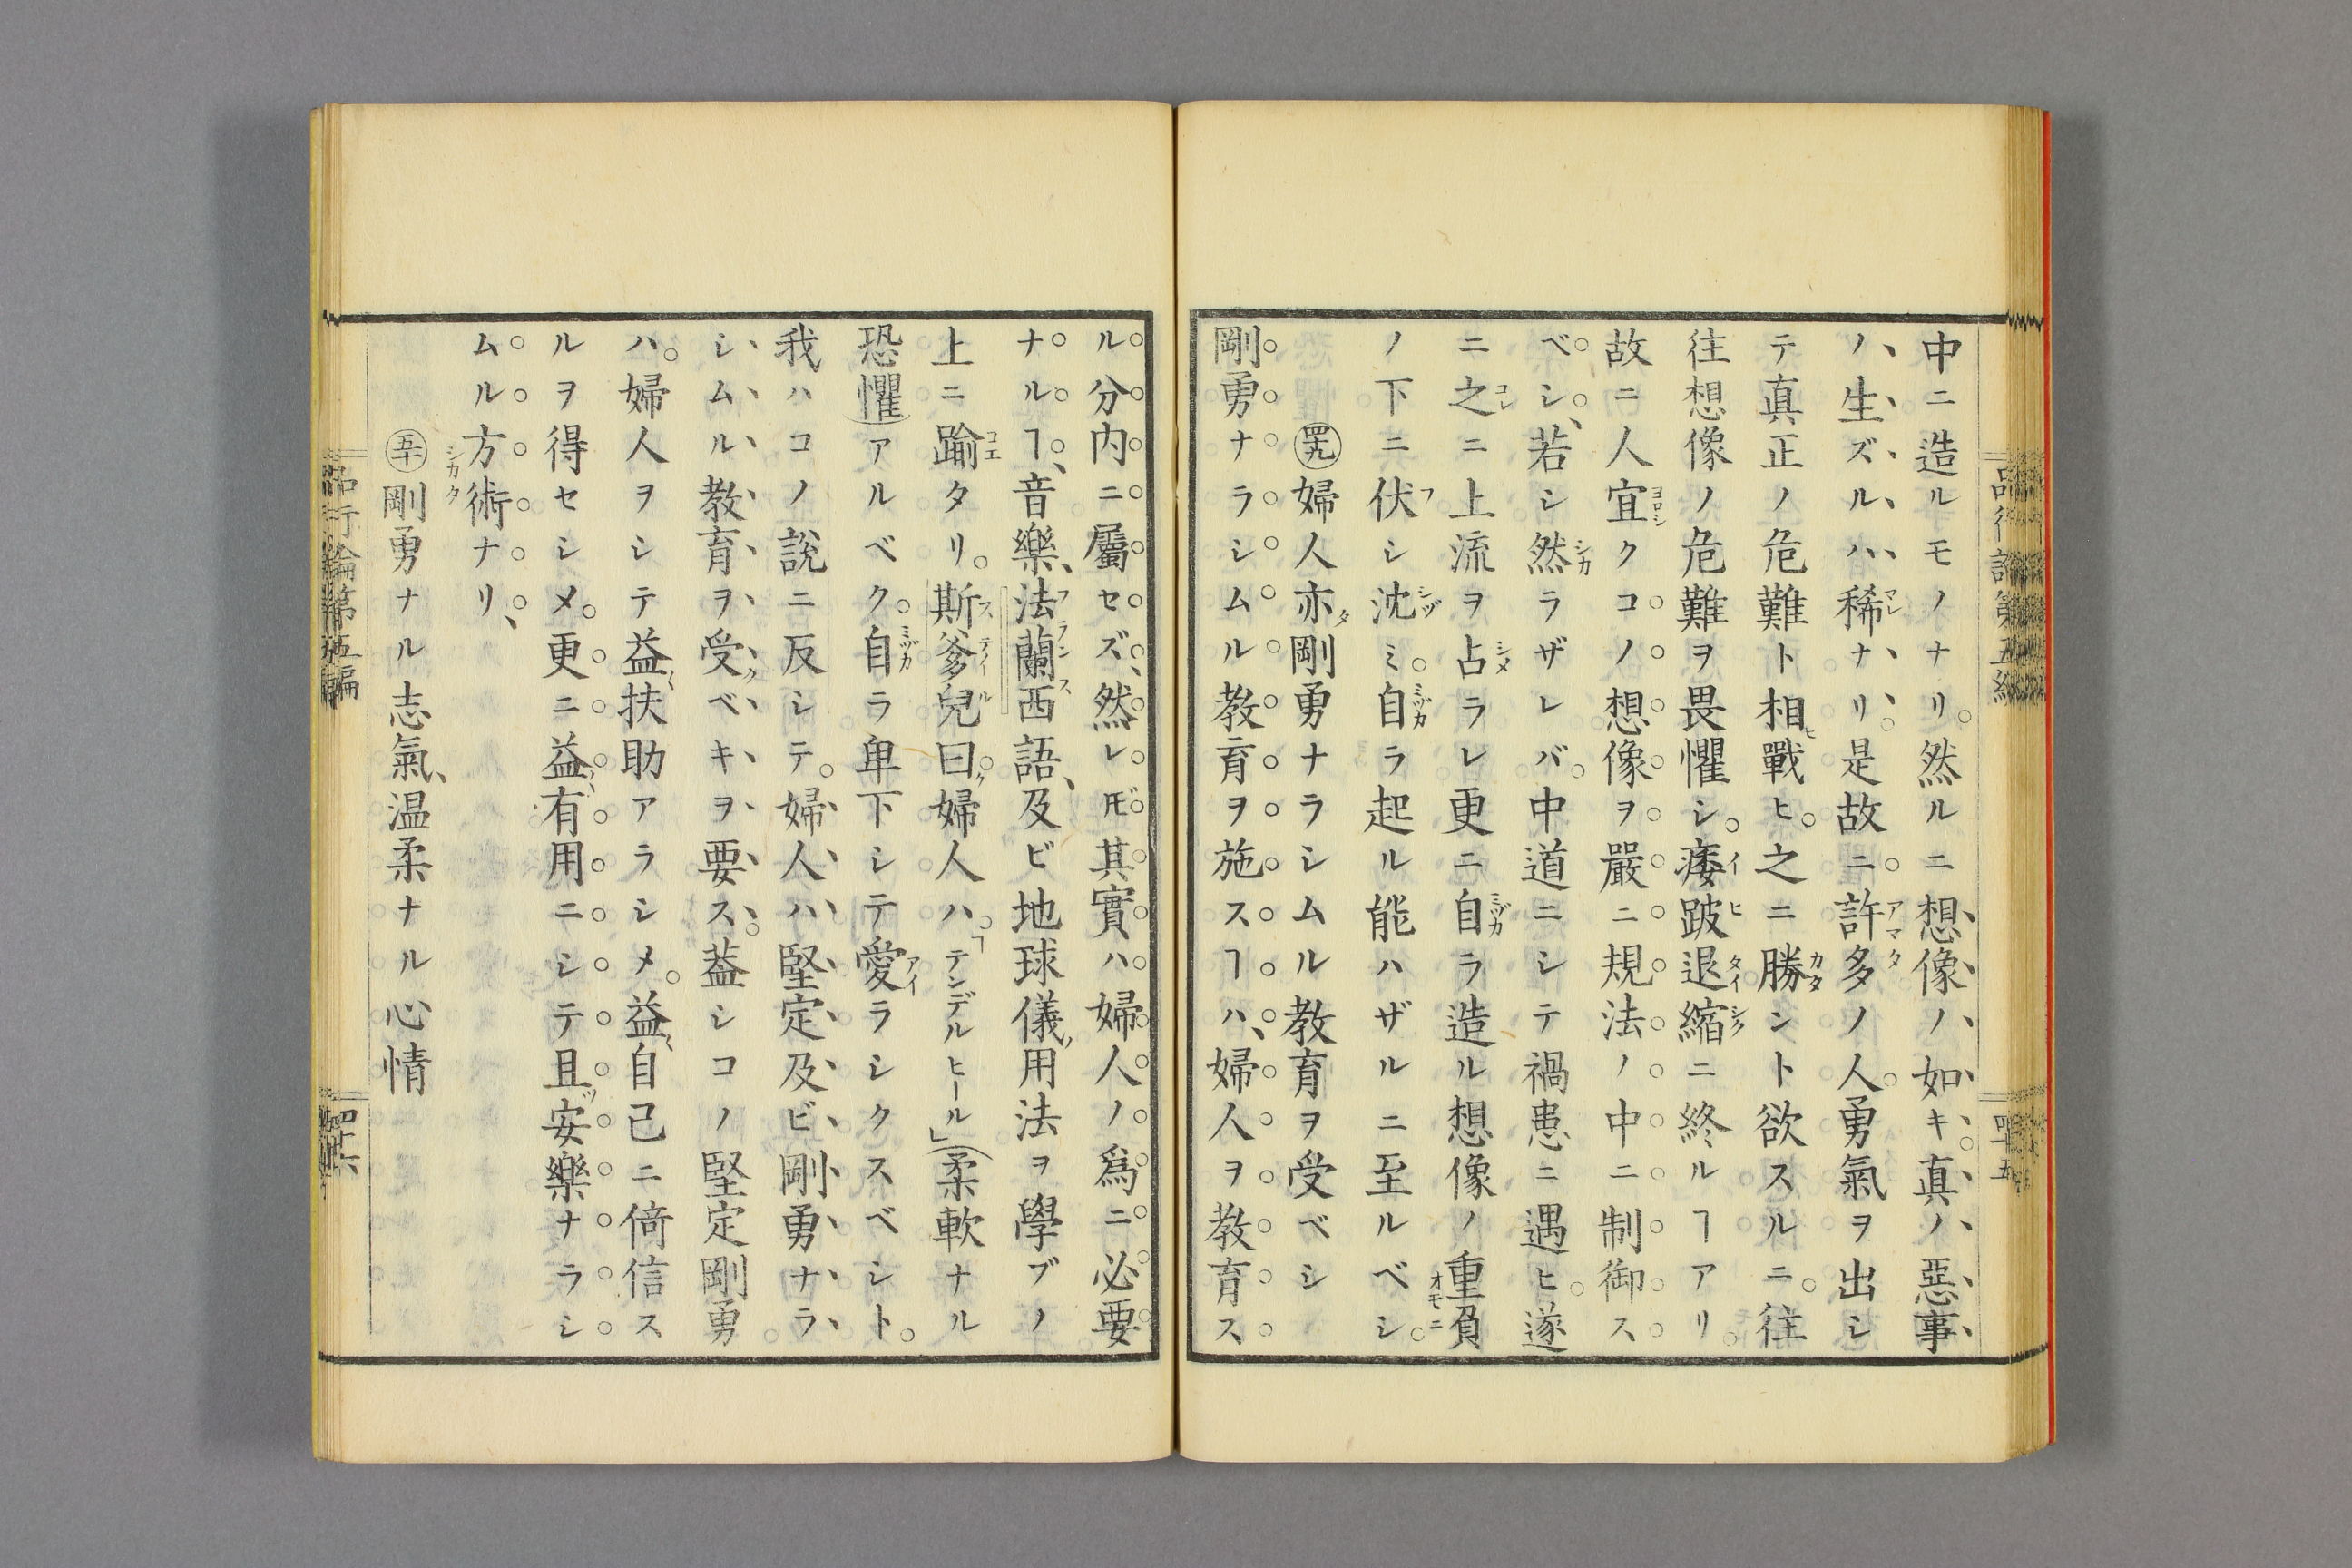 中ニ造ルモノナリ。然ルニ想像ノ如キ真ノ惡事
ノ生ズルハ稀ナリ。是故ニ許多ノ人。勇氣ヲ出シ
テ真正ノ危難ト相戰ヒ。之ニ勝ント欲スルニ。往
往想像ノ危難ヲ畏懼シ。痿跛退縮ニ終ルヿアリ。
故ニ人宜クコノ想像ヲ嚴ニ規法ノ中ニ制御ス
ベシ、若シ然ラザレバ。中道ニシテ禍患ニ遇ヒ。遂
ニ之ニ上流ヲ占ラレ更ニ自ラ造ル想像ノ重負
ノ下ニ伏シ沈ミ。自ラ起ル能ハザルニ至ルベシ。
㊾婦人亦剛勇ナラシムル教育ヲ受ベシ
剛勇ナラシムル教育ヲ施スヿハ、婦人ヲ教育ス
品行論第五編
四十五
ル分内ニ屬セズ、然レ𪜈其實ハ婦人ノ爲ニ必要
ナルヿ、音樂、法蘭西語、及ビ地球儀用法ヲ學ブノ
上ニ踰タリ。斯爹兒曰。婦人ハ。「テンデルヒール」(柔軟ナル
恐懼)アルベク。自ラ卑下シテ愛ラシクスベシト。
我ハコノ說ニ反シテ。婦人ハ堅定及ビ剛勇ナラ
シムル教育ヲ受ベキヲ要ス。蓋シコノ堅定剛勇
ハ。婦人ヲシテ益〻扶助アラシメ。益〻自己ニ倚信ス
ルヲ得セシメ。更ニ益〻有用ニシテ且安樂ナラシ
ムル方術ナリ、
㊿剛勇ナル志氣、温柔ナル心情
品行論第五編
四十六